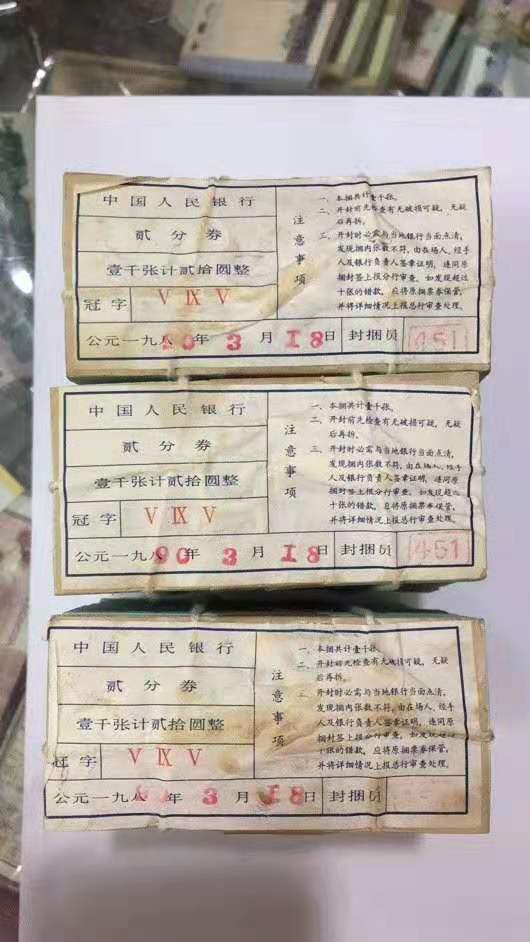 中国人民银行
贰分券
壹千张计贰拾圆整
冠字 V IX V
公元一九八90年3月18日 封捆员 451
注意事项
一、本捆共计壹千张。
二、开封前先检查有无破损可疑，无疑
后再拆。
三、开封时必需与当地银行当面点清，
发现捆内张数不符，由在场人、经手
人及银行负责人签章证明，连同原
捆封签上报分行审查。如发现超过
十张的错款，应将原捆票券保管，
并将详细情况上报总行审查处理。
中国人民银行
贰分券
壹千张计贰拾圆整
冠字 V IX V
公元一九八90年3月18日 封捆员 451
注意事项
一、本捆共计壹千张。
二、开封前先检查有无破损可疑，无疑
后再拆。
三、开封时必需与当地银行当面点清，
发现捆内张数不符，由在场人、经手
人及银行负责人签章证明，连同原
捆封签上报分行审查。如发现超过
十张的错款，应将原捆票券保管，
并将详细情况上报总行审查处理。
中国人民银行
贰分券
壹千张计贰拾圆整
冠字 V IX V
公元一九八 年3月18日 封捆员
注意事项
一、本捆共计壹千张。
二、开封前先检查有无破损可疑，无疑
后再拆。
三、开封时必需与当地银行当面点清，
发现捆内张数不符，由在场人、经手
人及银行负责人签章证明，连同原
捆封签上报分行审查。如发现超过
十张的错款，应将原捆票券保管，
并将详细情况上报总行审查处理。